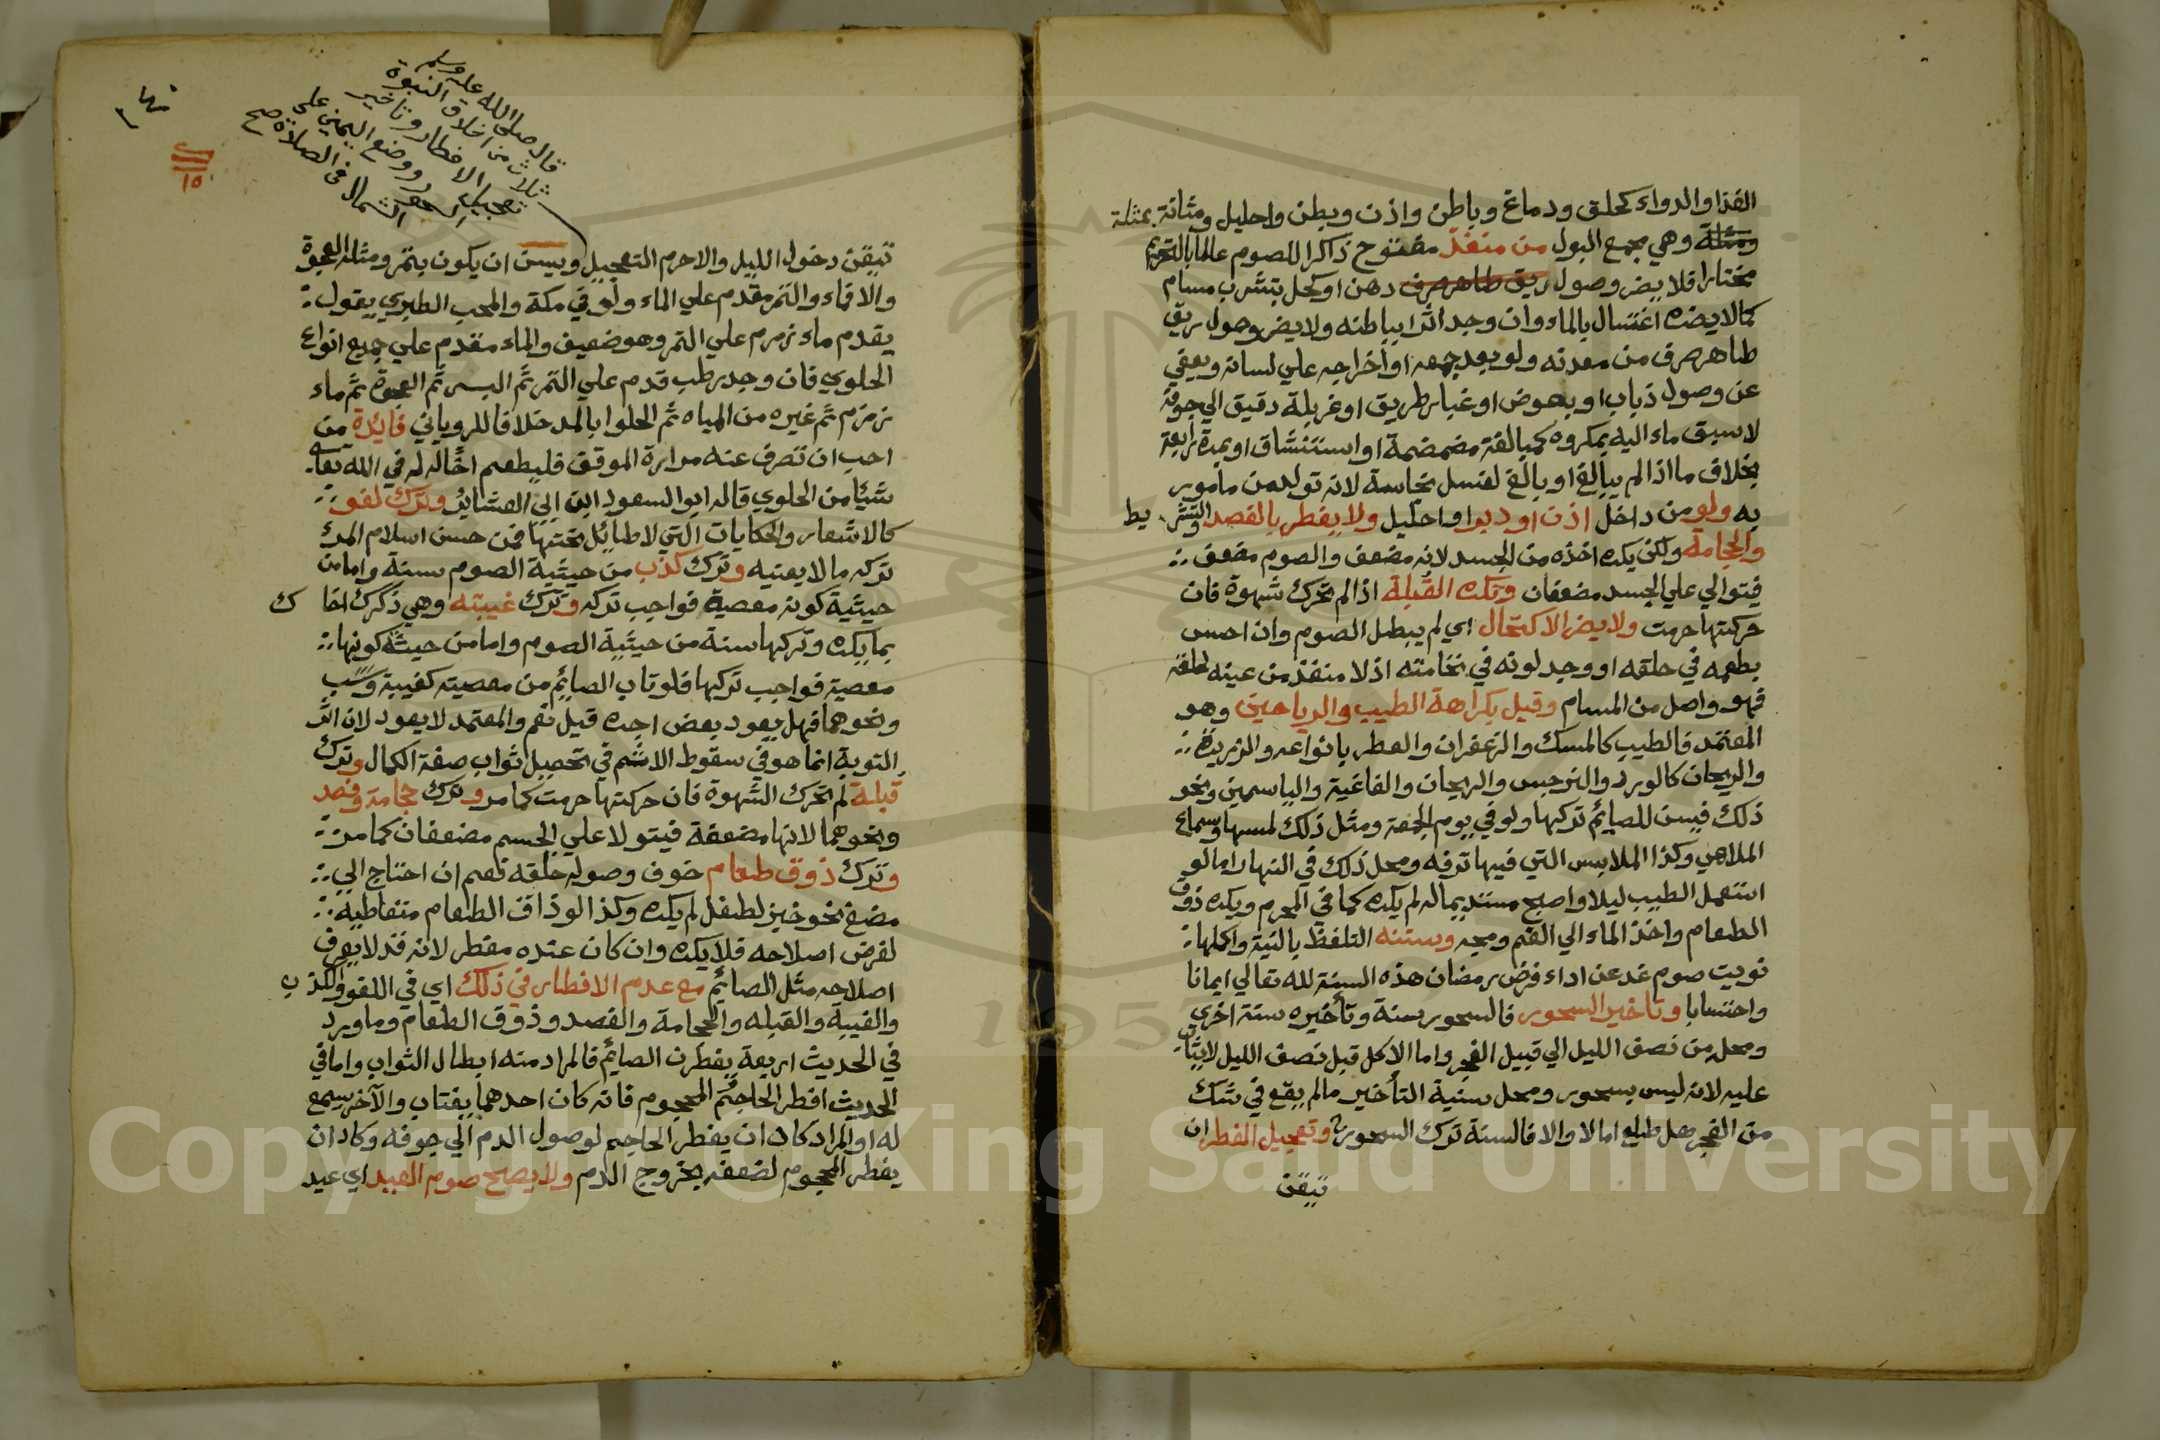 الغذا والدواء كحلق ودماغ وباطن واذن وبطن واحليل ومثانة بمثلثة
ومثلثة وهي مجمع البول من منفذ مفتوح ذاكرا للصوم عالما بالتحريم
مختارا فلا يضر وصول ريق طاهر صرف دهن او كحل بتشرب مسام
كما لا يضره اغتسال بالماء وان وجد اثرا بباطنه ولا يضر وصول ريق
طاهر صرف من معدنه ولو بعد جمعه او اخراجه علي لسانه ويعفي
عن وصول ذباب او بعوض او غبار طريق او غربلة دقيق الي جوفه
لا سبق ماء اليه بمكروه كمبالغة مضمضة او استنشاق او بمرة رابعة
بخلاف ما اذا لم يبالغ او بالغ لغسل نجاسة لانه تولد من مامور
به ولو من داخل اذن او دبر او احليل ولا يفطر بالفصد والتشريط
والحجامة ولكن يكره اخذه من الجسد لانه مضعف والصوم مضعف
فيتوالي علي الجسد مضعفان وتكره القبلة اذا لم تحرك شهوة فان
حركتها حرمت ولا يضر الاكتحال اي لم يبطل الصوم وان احس
بطعمه في حلقه او وجد لونه في نخامته اذ لا منفذ من عينه لحلقه
فهو واصل من المسام وقيل بكراهة الطيب والرياحين وهو
المعتمد فالطيب كالمسك والزعفران والعطر بانواعه والزريدة
والريحان كالورد والنرجس والريحان والفاغية والياسمين ونحو
ذلك فيسن للصائم تركها ولو في يوم الجمعة ومثل ذلك لمسها وسماع
الملاهي وكذا الملابس التي فيها ترفه ومحل ذلك في النهار اما لو
استعمل الطيب ليلا واصبح مستديما له لم يكره كما في المحرم ويكره ذوق
الطعام واخذ الماء الي الفم ومجه وسننه التلفظ بالنية واكملها
نويت صوم غد عن اداء فرض رمضان هذه السنة لله تعالي ايمانا
واحتسابا وتاخير السحور فالسحور سنة وتأخيره سنة اخري
ومحله من نصف الليل الي قبيل الفجر واما الاكل قبل نصف الليل لا يثاب
عليه لانه ليس بسحور ومحل سنية التأخير ما لم يقع في شك
من الفجر هل طلع ام لا والا فالسنة ترك السحور وتعجيل الفطر ان
تيقن
قال صلي الله عليه وسلم
ثلاث من اخلاق النبوة
تعجيل الافطار وتاخير
السحور ووضع اليمني علي
الشمال في الصلاة صح
١٥
تيقن دخول الليل والا حرم التعجيل ويسن ان يكون بتمر ومثله العجوة
والا فماء والتمر مقدم علي الماء ولو في مكة والمحب الطبري يقول
يقدم ماء زمزم علي التمر وهو ضعيف والماء مقدم علي جميع انواع
الحلوي فان وجد رطب قدم علي التمر ثم البسر ثم العجوة ثم ماء
زمزم ثم غيره من المياه ثم الحلوا بالمد خلافا للروياني فائدة من
احب ان تصرف عنه مرارة الموقف فليطعم اخا له في الله تعالي
شيئا من الحلوي قاله ابو السعود ابن ابي العشاير وترك لغو
كالاشعار والحكايات التي لا طايل تحتها فمن حسن اسلام المرء
تركه ما لا يعنيه وترك كذب من حيثية الصوم سنة واما من
حيثية كونه معصية فواجب تركه وترك غيبته وهي ذكرك اخاك
بما يكره وتركها سنة من حيثية الصوم واما من حيثة كونها
معصية فواجب تركها فلو تاب الصائم من معصيته كغيبة وسب
ونحوهما فهل يعود بعض اجره قيل نعم والمعتمد لا يعود لان اثر
التوبة انما هو في سقوط الاثم في تحصيل ثواب صفة الكمال وترك
قبلة لم تحرك الشهوة فان حركتها حرمت كما مر وترك حجامة وفصد
ونحوهما لانها مضعفة فيتولا علي الجسم مضعفان كما مر
وترك ذوق طعام خوف وصوله حلقه نعم ان احتاج الي
مضغ نحو خبز لطفل لم يكره وكذا لو ذاق الطعام متعاطيه
لغرض اصلاحه فلا يكره وان كان عنده مفطر لانه قد لا يعرف
اصلاحه مثل الصائم مع عدم الافطار في ذلك اي في اللغو والكذب
والغيبة والقبله والحجامة والفصد وذوق الطعام وما ورد
في الحديث اربعة يفطرن الصائم فالمراد منه ابطال الثواب واما في
الحديث افطر الحاجم المحجوم فانه كان احدهما يغتاب والآخر يسمع
له او المراد كاد ان يفطر الحاجم لوصول الدم الي جوفه وكاد ان
يفطر المحجوم لضعفه بخروج الدم ولا يصح صوم العيد اي عيد
Copyright © King Saud University
1957